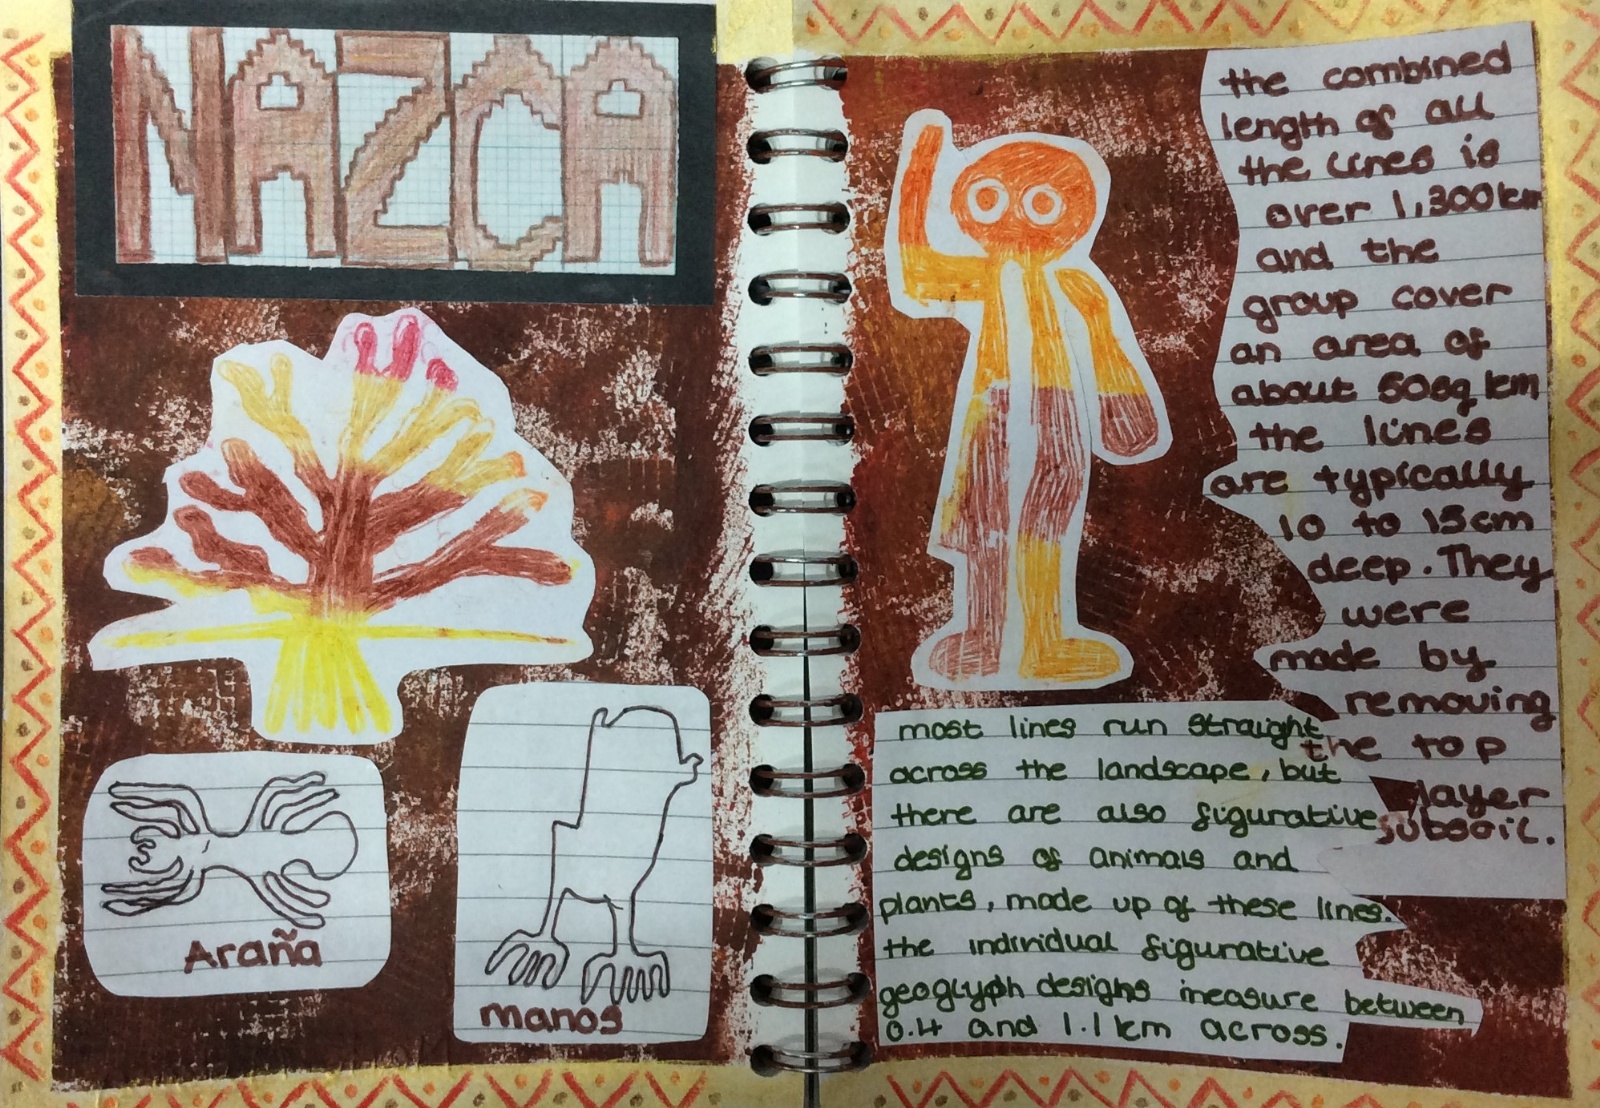 NAZCA
Araña
manos
the combined
length of all
the lines is
over 1,300km
and the
group cover
an area of
about 50sq km
the lines
are typically
10 to 15cm
deep. They
were
made by
removing
the top
layer
subsoil.
most lines run straight
across the landscape, but
there are also figurative
designs of animals and
plants, made up of these lines.
the individual figurative
geoglyph designs measure between
0.4 and 1.1km across.